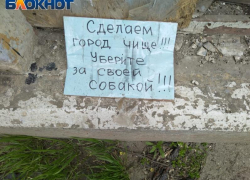 БЛОКНОТ
Сделаем
город чище!!!
Уберите
за своей
собакой!!!